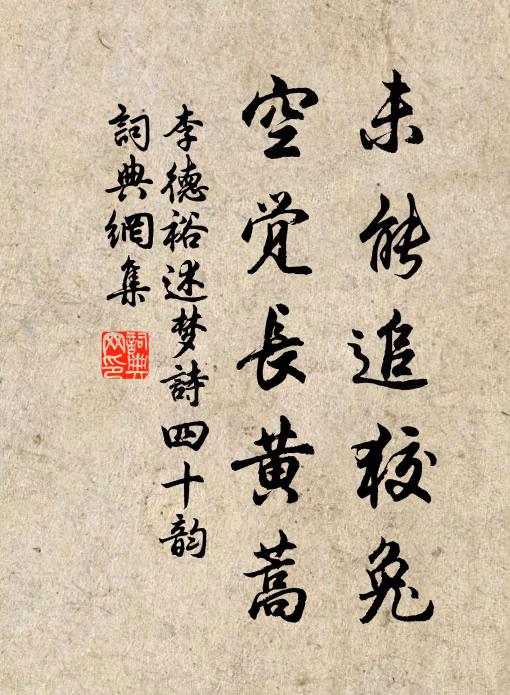 未能追狡兔
空觉長黄蒿
李德裕述梦詩四十韵
詞典網集
詞典網印